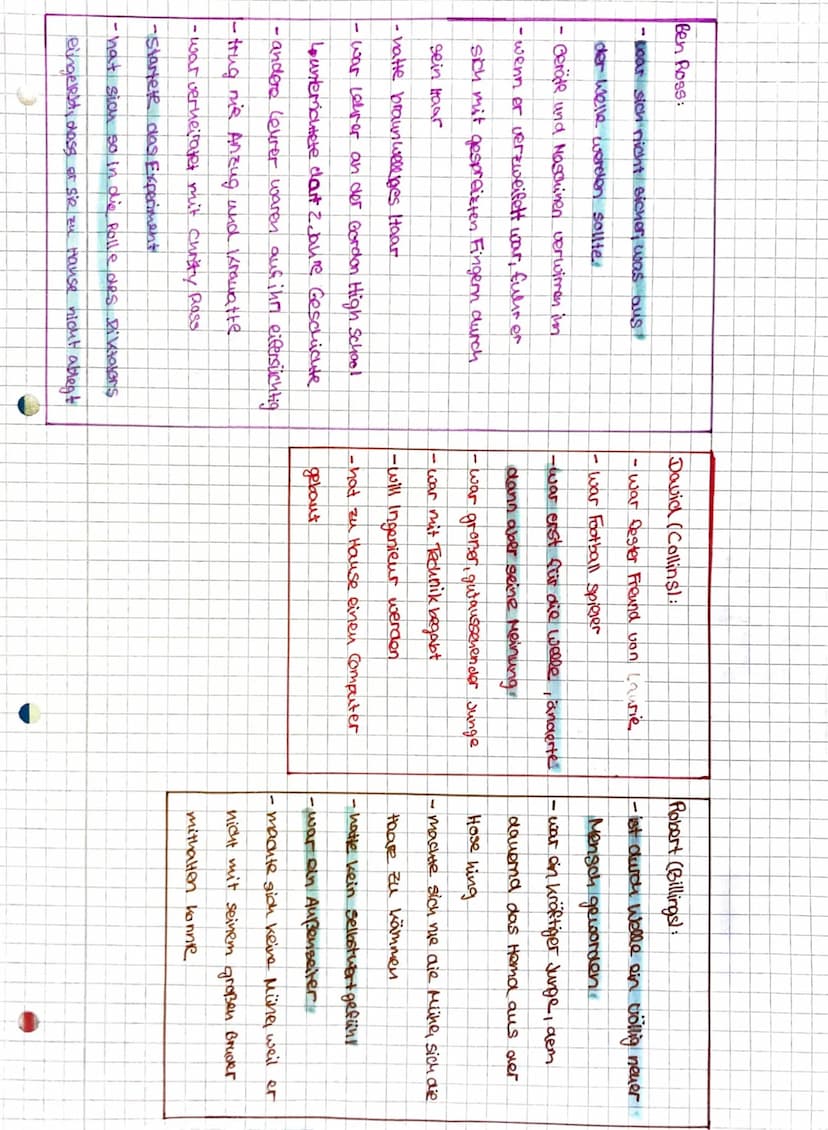 Ben Ross:
- war sich nicht sicher, was aus
der Welle werden sollte.
- Geräte und Maschinen verwirren ihn
- wenn er verzweifelt war, fuhr er
sich mit gespreizten Fingern durch
sein Haar
- hatte braunwelliges Haar
- war Lehrer an der Gordon High School
↳ unterrichtete dort 2 Jahre Geschichte
- andere Lehrer waren auf ihn eifersüchtig
- trug nie Anzug und Krawatte
- war verheiratet mit Christy Ross
- startete das Experiment
- hat sich so in die Rolle des Diktators
eingelebt, dass er sie zu Hause nicht ablegt
David (Collins):
- war fester Freund von Laurie
- war Football spieler
- war erst für die Welle, änderte
dann aber seine Meinung
- war großer, gutaussehender Junge
- war mit Technik begabt
- will Ingenieur werden
- hat zu Hause einen Computer
gebaut
Robert (Billings):
- ist durch Welle ein völlig neuer
Mensch geworden
- war ein kräftiger Junge, dem
dauernd das Hemd aus der
Hose hing
- machte sich nie die Mühe, sich die
Haare zu kämmen
- hatte kein selbstwertgefühl
- war ein Außenseiter
- machte sich keine Mühe, weil er
nicht mit seinem großen Bruder
mithalten konnte